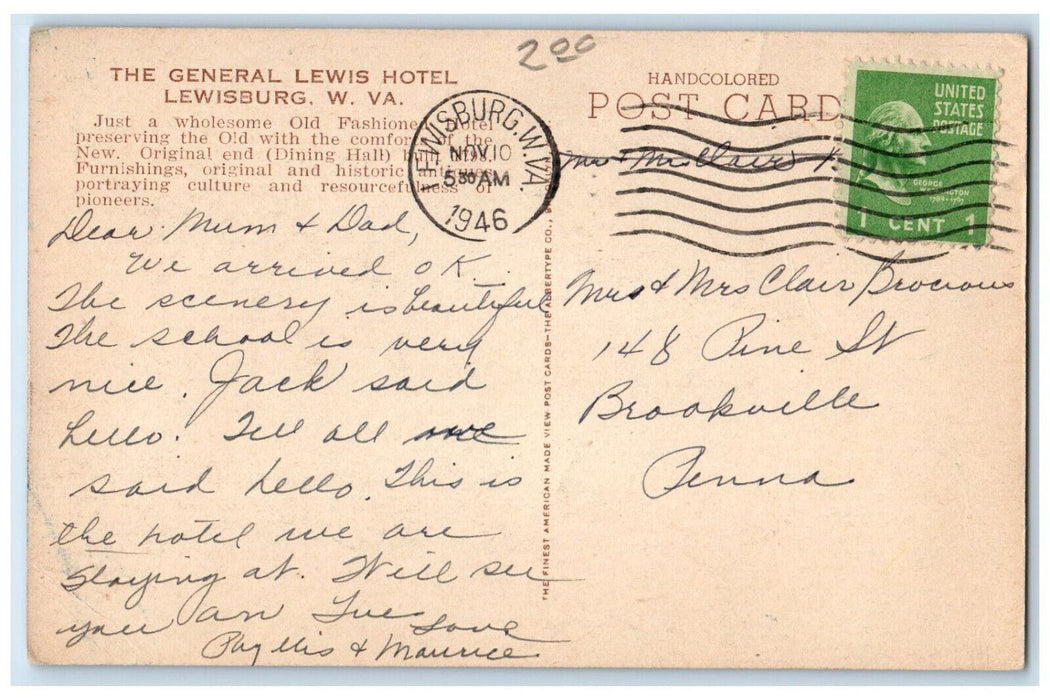 2.00
THE GENERAL LEWIS HOTEL
LEWISBURG, W. VA.
Just a wholesome Old Fashioned Hotel
preserving the Old with the comfort of the
New. Original end (Dining Hall) built
Furnishings, original and historic antiques
portraying culture and resourcefulness of
pioneers.
LEWISBURG, W. VA.
NOV 10
5 30 AM
1946
HANDCOLORED
POST CARD
UNITED
STATES
POSTAGE
GEORGE
WASHINGTON
1789-1797
1 CENT 1
Mr & Mrs Clair
Dear Mum & Dad,
We arrived OK
The scenery is beautiful
The school is very
nice. Jack said
hello. Tell all
said hello. This is
the hotel we are
staying at. Will see
you on Tues
Love
Phyllis & Maurice
THE FINEST AMERICAN MADE VIEW POST CARDS—THE ALBERTYPE CO.,
Mrs & Mrs Clair Brocious
148 Pine St
Brookville
Penna